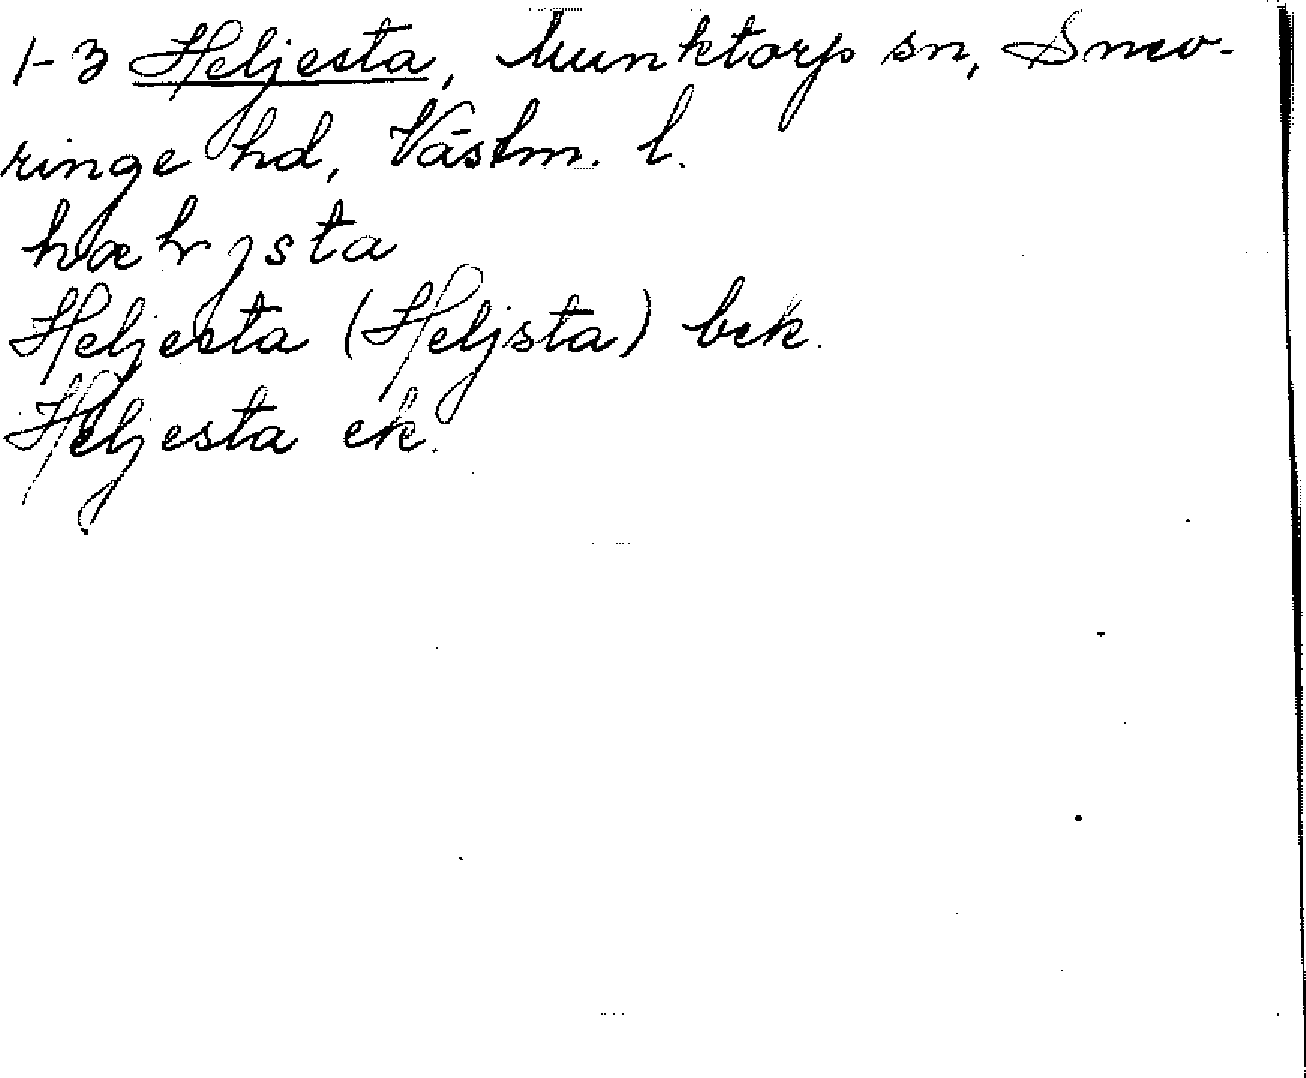 1-3 Heljesta, Munktorp sn, Snev-
ringe hd, Västm. l.
Heljesta (Heljsta) bek.
Heljesta ek.